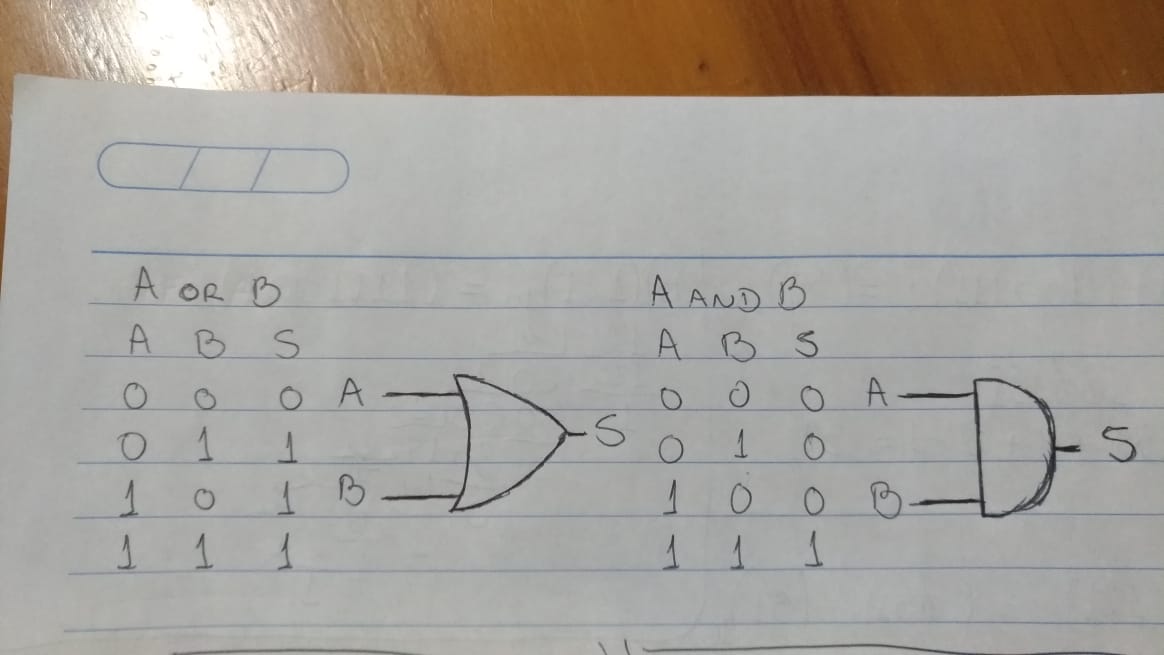 A OR B
A B S
0 0 0
0 1 1
1 0 1
1 1 1
A
B
S
A AND B
A B S
0 0 0
0 1 0
1 0 0
1 1 1
A
B
S